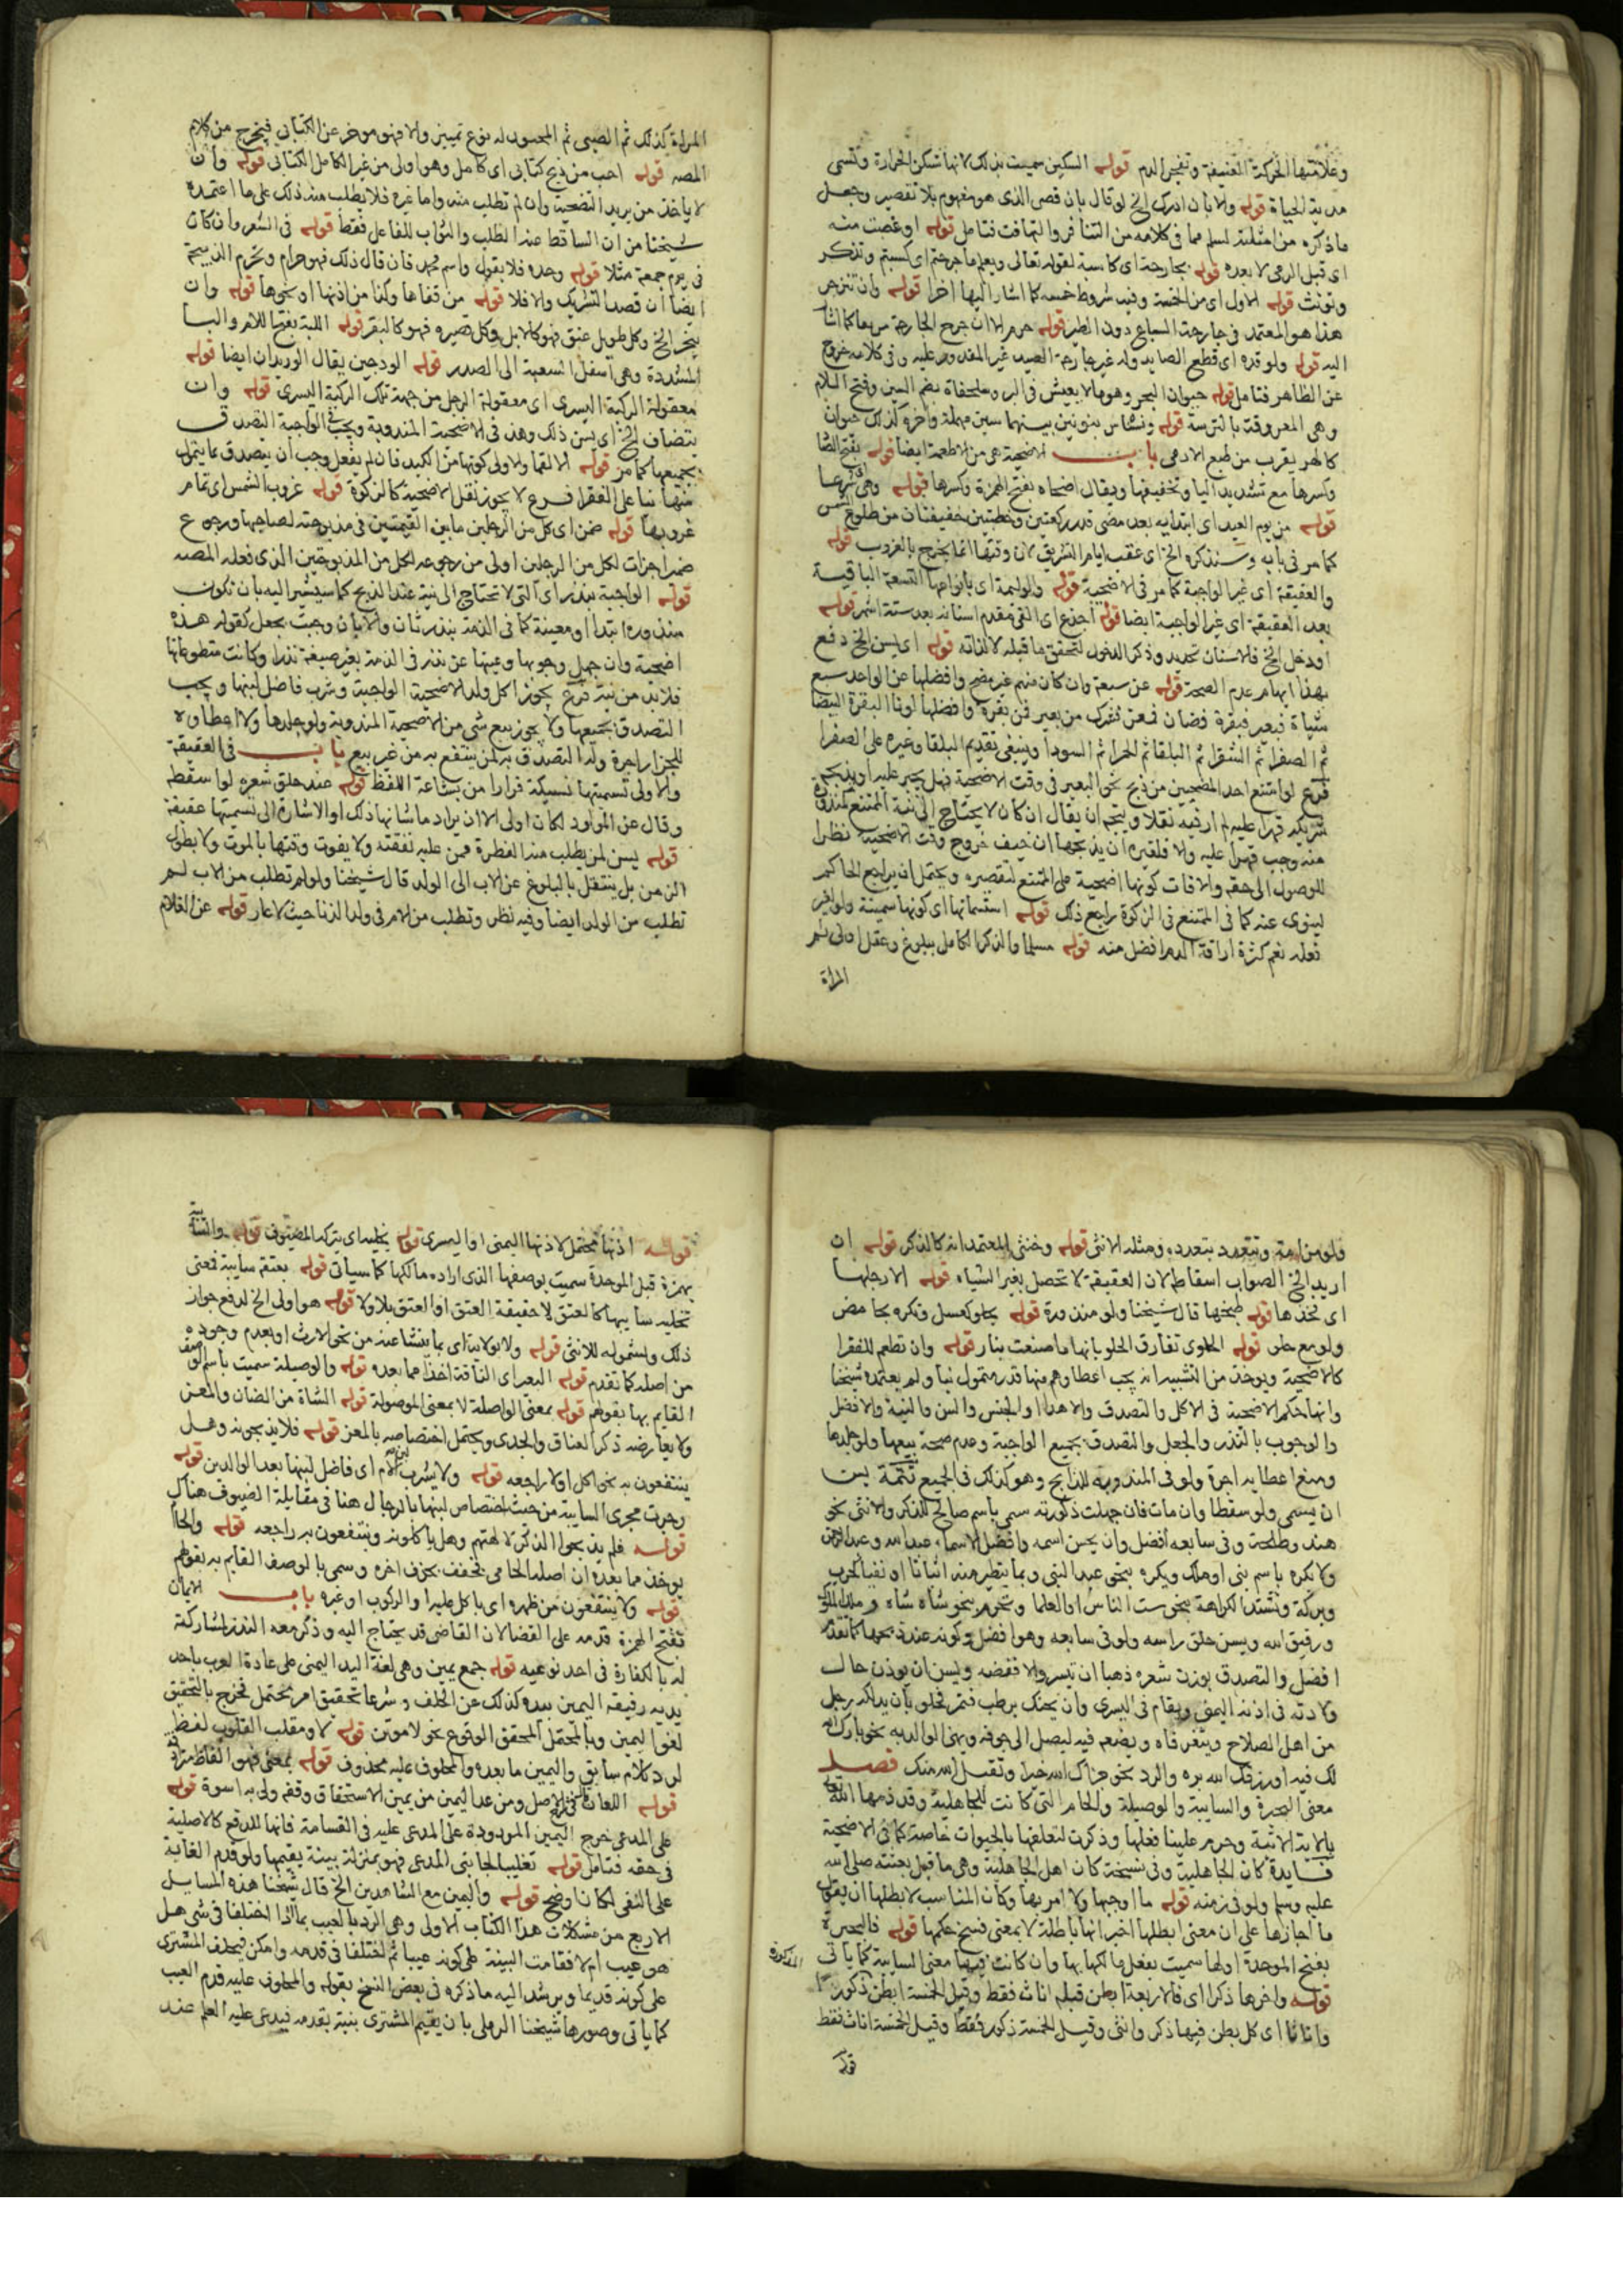 وعلامتها الحركة العنيفة وتفجر الدم قوله السكين سميت بذلك لانها تسكن الحرارة وتسمى
مدية الحياة قوله ولا بان ادرك الخ لو قال بان قصر الذى هو مفهوم بلا تقصير وجعل
ما ذكره من امثلته لسلم مما فى كلامه من التنافر والتهافت فتامل قوله او غصبت منه
اى قبل الرمى لا بعده قوله بجارحة اى كاسبة لقوله تعالى ويعلم ما جرحتم اى كسبتم وتذكر
وتونث قوله الاول اى من الخمسة وفيه شروط خمسة كما اشار اليها اخرا قوله وان تنزجر
هذا هو المعتمد فى جارحة السباع دون الطير قوله حرم الا ان جرح الجارحة سريعا كما اشار
اليه قوله ولو قده اى قطع الصايد وله غير جارحة الصيد غير المقدور عليه وفى كلامه خروج
عن الظاهر فتامل قوله حيوان البحر وهو ما لا يعيش فى البر وسلحفاة بضم السين وفتح اللام
وهى المعروفة بالترسة قوله ونسناس بنونين بينهما سين مهملة واخره كذلك حيوان
كالهر يقرب من طبع الادمى باب الاضحية هى من الاطعمة ايضا قوله بفتح الضا
وكسرها مع تشديد اليا وتخفيفها ويقال اضحاه بفتح الهمزة وكسرها قوله وهى شرعا
قوله من يوم العيد اى ابتدايه بعد مضى قدر ركعتين وخطبتين خفيفتات من طلوع الشمس
كما مر فى بابه وسنذكره الخ اى عقب ايام التشريق لان وقتها انما يخرج بالغروب قوله
والعقيقة اى غير الواجبة كما مر فى الاضحية قوله والوليمة اى بانواعها التسعة الباقية
بعد العقيقة اى غير الواجبة ايضا قوله اجذع اى القى مقدم اسنانه بعد ستة اشهر قوله
او دخل الخ فالاسنان تحديد وذكر الدخول لتحقق ما قبله لا لذاته قوله اى يسن الخ دفع
بهذا ايهام عدم الصحة قوله عن سبعة وان كان منهم غير مضح وافضلها عن الواحد سبع
شياه فبعير فبقرة فضان فمعز فشرك من بعير فمن بقرة وافضلها لونا البقرة البيضا
ثم الصفرا ثم الشقرا ثم البلقا ثم الحمرا ثم السودا وينبغى تقديم البلقا وغيره على الصفرا
فرع لو امتنع احد المضحين من ذبح نحو البعير فى وقت الاضحية فهل يجبر عليه او يذبحه
شريكه قهرا عليه لم ار فيه نقلا ويتجه ان يقال ان كان لا يحتاج الى نية الممتنع كمنذورة
منه وجب قهرا عليه والا فلغيره ان يذبحها ان خيف خروج وقت الاضحية نظرا
للوصول الى حقه والافات كونها اضحية على الممتنع لتقصيره ويحتمل ان يراجع الحاكم
لينوى عنه كما فى الممتنع فى الزكوة راجع ذلك قوله استسمانها اى كونها سمينة ولو بغير
فعله نعم كثرة اراقة الدم افضل منه قوله مسلما والذكر الكامل ببلوغ وعقل اولى ثم
المراة
المراة كذلك ثم الصبى ثم المجنون له نوع تمييز والا فهو موخر عن الكتابى فيخرج من كلام
المصه قوله احب من ذبح كتابى اى كامل وهو اولى من غير الكامل الكتابى قوله وان
لا ياخذ من يريد التضحية وان لم تطلب منه واما غيره فلا يطلب منه ذلك على ما اعتمده
شيخنا من ان الساقط عنه الطلب والثواب للفاعل فقط قوله فى الشعر وان كان
فى يوم جمعة مثلا قوله وحده فلا يقول واسم محمد فان قال ذلك فهو حرام وتحرم الذبيحة
ايضا ان قصد التشريك والا فلا قوله من قفاها وكذا من اذنها او نحوها قوله وان
ينحر الخ وكل طويل عنق فهو كالابل وكل قصيره فهو كالبقر قوله اللبة بفتح اللام والبا
المشددة وهى اسفل الشعبة الى الصدر قوله الودجين يقال الوريدان ايضا قوله
معقولة الركبة اليسرى اى معقولة الرجل من جهة تلك الركبة اليسرى قوله وان
يتضاف الخ اى يسن ذلك وهذ فى الاضحية المندوبة ويجب فى الواجبة التصدق
بجميعها كما مر قوله الا لقما والاولى كونها من الكبد فان لم يفعل وجب ان يتصدق بما يتمول
منها نيا على الفقرا فرع لا يجوز نقل الاضحية كالزكوة قوله غروب الشمس اى تمام
غروبها قوله ضمن اى كل من الرجلين ما بين القيمتين فى مذبوحته لصاحبها ورجوع
ضمير اجزات لكل من الرجلين اولى من رجوعه لكل من المذبوحتين الذى فعله المصه
قوله الواجبة بنذر اى التى لا تحتاج الى نية عند الذبح كما سيشير اليه بان تكون
منذورة ابتدا او معينة كما فى الذمة بنذر ثان والا بان وجبت بجعل كقوله هذه
اضحية وان جهل وجوبها وعينها عن نذر فى الذمة بغير صيغة نذر او كانت متطوعا بها
فلا بد من نية فرع يجوز اكل ولد الاضحية الواجبة وشرب فاضل لبنها ويجب
التصدق بجميعها ولا يجوز بيع شى من الاضحية المندوبة ولو جلدها ولا اعطاوه
للجزار اجرة وله التصدق به لمن ينتفع به من غير بيع باب فى العقيقة
والاولى تسميتها نسيكة فرارا من بشاعة اللفظ قوله عند حلق شعره لو اسقطه
وقال عن المولود لكان اولى الا ان يراد ما شانها ذلك او الاشارة الى تسميتها عقيقة
قوله يسن لمن يطلب منه الفطرة فمن عليه نفقته ولا يفوت وقتها بالموت ولا بطول
الزمن بل ينتقل بالبلوغ عن الاب الى الولد قال شيخنا ولو لم تطلب من الاب لم
تطلب من الولد ايضا وفيه نظر وتطلب من الام فى ولد الزنا حيث لا عار قوله عن الغلام
ولو من امة وتتعدد بتعدده ومثله الانثى قوله وخنثى المعتمد انه كالذكر قوله ان
اريد الخ الصواب اسقاطه لان العقيقة لا تحصل بغير الشياه قوله الا رجلها
اى فخذها قوله طبخها قال شيخنا ولو منذورة قوله بحلو كعسل وتكره بحامض
ولو مع حلو قوله الحلوى تفارق الحلو بانها ما صنعت بنار قوله وان تطعم للفقرا
كالاضحية ويوخذ من التشبيه انه يجب اعطاوهم منها قدر متمول نيا ولم يعتمده شيخنا
وانها حكم الاضحية فى الاكل والتصدق والاهدا والجنس والسن والنية والافضل
والوجوب بالنذر والجعل والتصدق بجميع الواجبة وعدم صحة بيعها ولو جلدها
ومنع اعطايه اجرة ولو فى المندوبة للذابح وهو كذلك فى الجميع تتمة يسن
ان يسمى ولو سقطا وان مات فان جهلت ذكورته سمى باسم صالح للذكر والانثى نحو
هند وطلحة وفى سابعه افضل وان يحسن اسمه وافضل الاسما عبد الله وعبد الرحمن
ولا يكره باسم نبى او ملك ويكره بنحو عبد النبى وبما يتطير منه اثباتا او نفيا كحرب
وبركة وتشتد الكراهة بنحو ست الناس او العلما وتحرم بنحو شاه شاه وملك الملوك
ورفيق الله ويسن حلق راسه ولو فى سابعه وهو افضل وكونه عند ذبحها كما تقدم
افضل والتصدق بوزن شعره ذهبا ان تيسر والا ففضة ويسن ان يوذن حال
ولادته فى اذنه اليمنى ويقام فى اليسرى وان يحنك برطب فتمر فحلو بان يدلكه رجل
من اهل الصلاح ويفغر فاه ويضعه فيه ليصل الى جوفه ويهنى الوالد به نحو بارك الله
لك فيه او رزقك الله بره والرد بنحو جزاك الله خيرا وتقبل الله منك فصل
معنى البحيرة والسايبة والوصيلة والحام التى كانت للجاهلية وقد ذمها الله تعالى
بالاية الاتية وحرم علينا فعلها وذكرت لتعلقها بالحيوان خاصة كما فى الاضحية
فايدة كان الجاهلية وفى نسخة كان اهل الجاهلية وهى ما قبل بعثته صلى الله
عليه وسلم ولو فى زمنه قوله ما اوجبها ولا امر بها وكان المناسب لابطلها ان يقول
ما اجازها على ان معنى ابطلها اخبر انها باطلة لا بمعنى فسخ حكمها قوله فالبحيرة
بفتح الموحدة اولها سميت بفعل مالكها بها وان كانت فيها معنى السايبة كما ياتى المذكورة
قوله واخرها ذكر اى فالاربعة ابطن قبله اناث فقط وقيل الخمسة ابطن ذكورا
واناثا اى كل بطن فيها ذكر وانثى وقيل الخمسة ذكور فقط وقيل الخمسة اناث فقط
قوله
قوله اذنها يحتمل لاذنها اليمنى او اليسرى قوله يخليه اى يتركه المضيوف قوله والسايبة
بهمزة قبل الموحدة سميت بوصفها الذى اراده مالكها كما سياتى قوله يعتقه سايبة فمعنى
تخليه سايبها كالعتق لا حقيقة العتق او العتق بلا ولا قوله هو اولى الخ لدفع جواز
ذلك ولشموله للانثى قوله ولا بولايه اى بما ينشا عنه من نحو الارث او بعدم وجوده
من اصله كما تقدم قوله البعير اى الناقة اخذا مما بعده قوله والوصيلة سميت باسم الوصف
القايم بها بقولهم قوله بمعنى الواصلة لا بمعنى الموصولة قوله الشاة من الضان والمعز
ولا يعارضه ذكر العناق والجدى ويحتمل اختصاصه بالمعز قوله فلا يذبحونه وهل
ينتفعون به بنحو اكل او لا راجعه قوله ولا يشرب لبن الام اى فاضل لبنها بعد الوالدين قوله
وجرت مجرى السايبة من حيث اختصاص لبنها بالرجال هنا فى مقابلة الضيوف هناك
قوله فلم يذبحوا الذكر لالهتهم وهل ياكلونه وينتفعون به راجعه قوله والحام
يوخذ مما بعده ان اصله الحامى فخفف بحذف اخره وسمى بالوصف القايم به بقولهم
قوله ولا ينتفعون من ظهره اى باكل عليه او الركوب او غيره باب الايمان
بفتح الهمزة قدمه على القضا لان القاضى قد يحتاج اليه وذكر معه النذر لمشاركته
له بالكفارة فى احد نوعيه قوله جمع يمين وهى لغة اليد اليمنى على عادة العرب باخذ
يديه رفيقه اليمين بيده كذلك عن الحلف وشرعا تحقيق امر محتمل فخرج بالتحقيق
لغو اليمين وبالمحتمل المحقق الوقوع نحو لاموتن قوله لا ومقلب القلوب لفظ
لرد كلام سابق واليمين ما بعده والمحلوف عليه محذوف قوله بمعنى فهو الفاظ مترادفة
قوله اللعان الاصل ومن عدا اليمين من يمين الاستحقاق وقفه ولى به اسوة قوله
على المدعى خرج اليمين المردودة على المدعى عليه فى القسامة فانها للدفع كالاصلية
فى حقه فتامل قوله تغليبا لجانبى المدعى فهو بمنزلة بينة يقيمها ولو قدم الغاية
على النفى لكان اوضح قوله واليمين مع الشاهدين الخ قال شيخنا هذه المسايل
الاربع من مشكلات هذا الكتاب الاولى وهى الرد بالعيب بما اذا اختلفا فى شى هل
هو عيب ام لا فقامت البينة على كونه عيبا ثم اختلفا فى قدمه وامكن فيحلف المشترى
على كونه قديما ويرشد اليه ما ذكره فى بعض النسخ بقوله والمحلوف عليه قدم العيب
كما ياتى وصورها شيخنا الرملى بان يقيم المشترى بينة بقدمه فيدعى عليه العلم عند